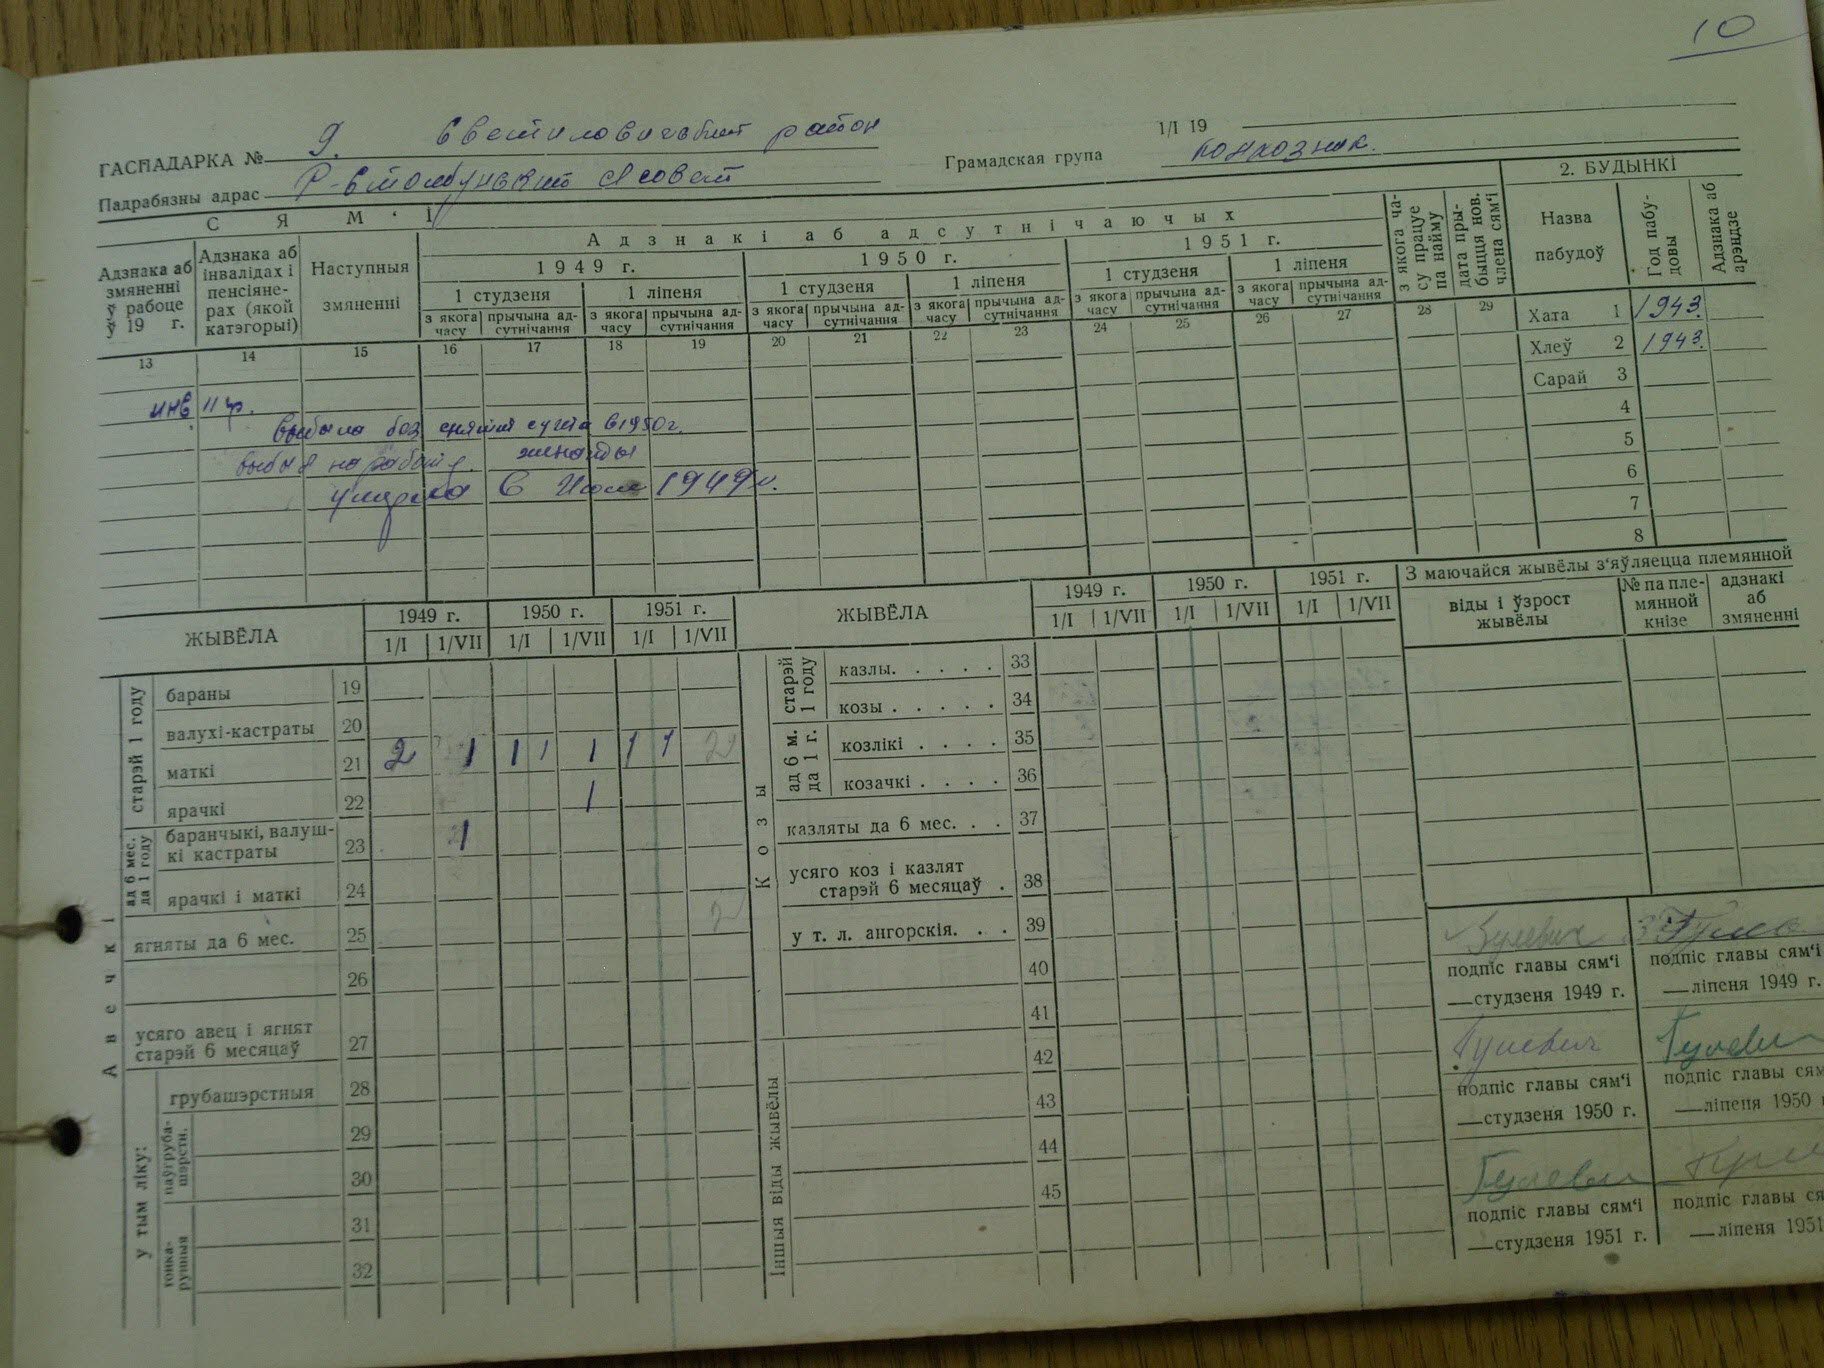 10
ГАСПАДАРКА № 9. район
1/I 19
Падрабязны адрас
Грамадская група колхозник.
С Я М ' І
2. БУДЫНКІ
Адзнака аб змяненні ў рабоце ў 19 г.
Адзнака аб інвалідах і пенсіяне-рах (якой катэгорыі)
Наступныя змяненні
Адзнакі аб адсутнічаючых
1949 г. 1950 г. 1951 г.
1 студзеня 1 ліпеня 1 студзеня 1 ліпеня 1 студзеня 1 ліпеня
з якога часу прычына ад-сутнічання з якога часу прычына ад-сутнічання з якога часу прычына ад-сутнічання з якога часу прычына ад-сутнічання з якога часу прычына ад-сутнічання з якога часу прычына ад-сутнічання
з якога ча-су працуе па найму
дата пры-быцця нов. члена сям'і
Назва пабудоў
Год пабу-довы
Адзнака аб арэндзе
13 14 15 16 17 18 19 20 21 22 23 24 25 26 27 28 29
Хата 1 1943.
Хлеў 2 1943.
Сарай 3
4
5
6
7
8
инв II гр.
выбыла без в 1950 г.
выбыл
умерла в 1949 г.
ЖЫВЁЛА
1949 г. 1950 г. 1951 г.
1/I 1/VII 1/I 1/VII 1/I 1/VII
Авечкі
старэй 1 году
бараны 19
валухі-кастраты 20
маткі 21 2 1 1 1 1 1 1 2
ярачкі 22 1
ад 6 мес. да 1 году
баранчыкі, валуш-
кі кастраты 23 1
ярачкі і маткі 24
ягняты да 6 мес. 25 2
26
усяго авец і ягнят
старэй 6 месяцаў 27
у тым ліку:
грубашэрстныя 28
паўгруба-шэрстн.
29
30
тонка-рунныя
31
32
ЖЫВЁЛА
1949 г. 1950 г. 1951 г.
1/I 1/VII 1/I 1/VII 1/I 1/VII
Козы
старэй 1 году
казлы. . . . . 33
козы . . . . . 34
ад 6 м. да 1 г.
козлікі . . . . 35
козачкі . . . . 36
казляты да 6 мес. . . 37
усяго коз і казлят
старэй 6 месяцаў . 38
у т. л. ангорскія. . . 39
40
41
Іншыя віды жывёлы
42
43
44
45
З маючайся жывёлы з'яўляецца племянной
віды і ўзрост жывёлы
№ па пле-мянной кнізе
адзнакі аб змяненні
подпіс главы сям'і
—студзеня 1949 г.
подпіс главы сям'і
—ліпеня 1949 г.
Гулевич
подпіс главы сям'і
—студзеня 1950 г.
подпіс главы сям'
—ліпеня 1950
подпіс главы сям'і
—студзеня 1951 г.
подпіс главы ся
—ліпеня 1951